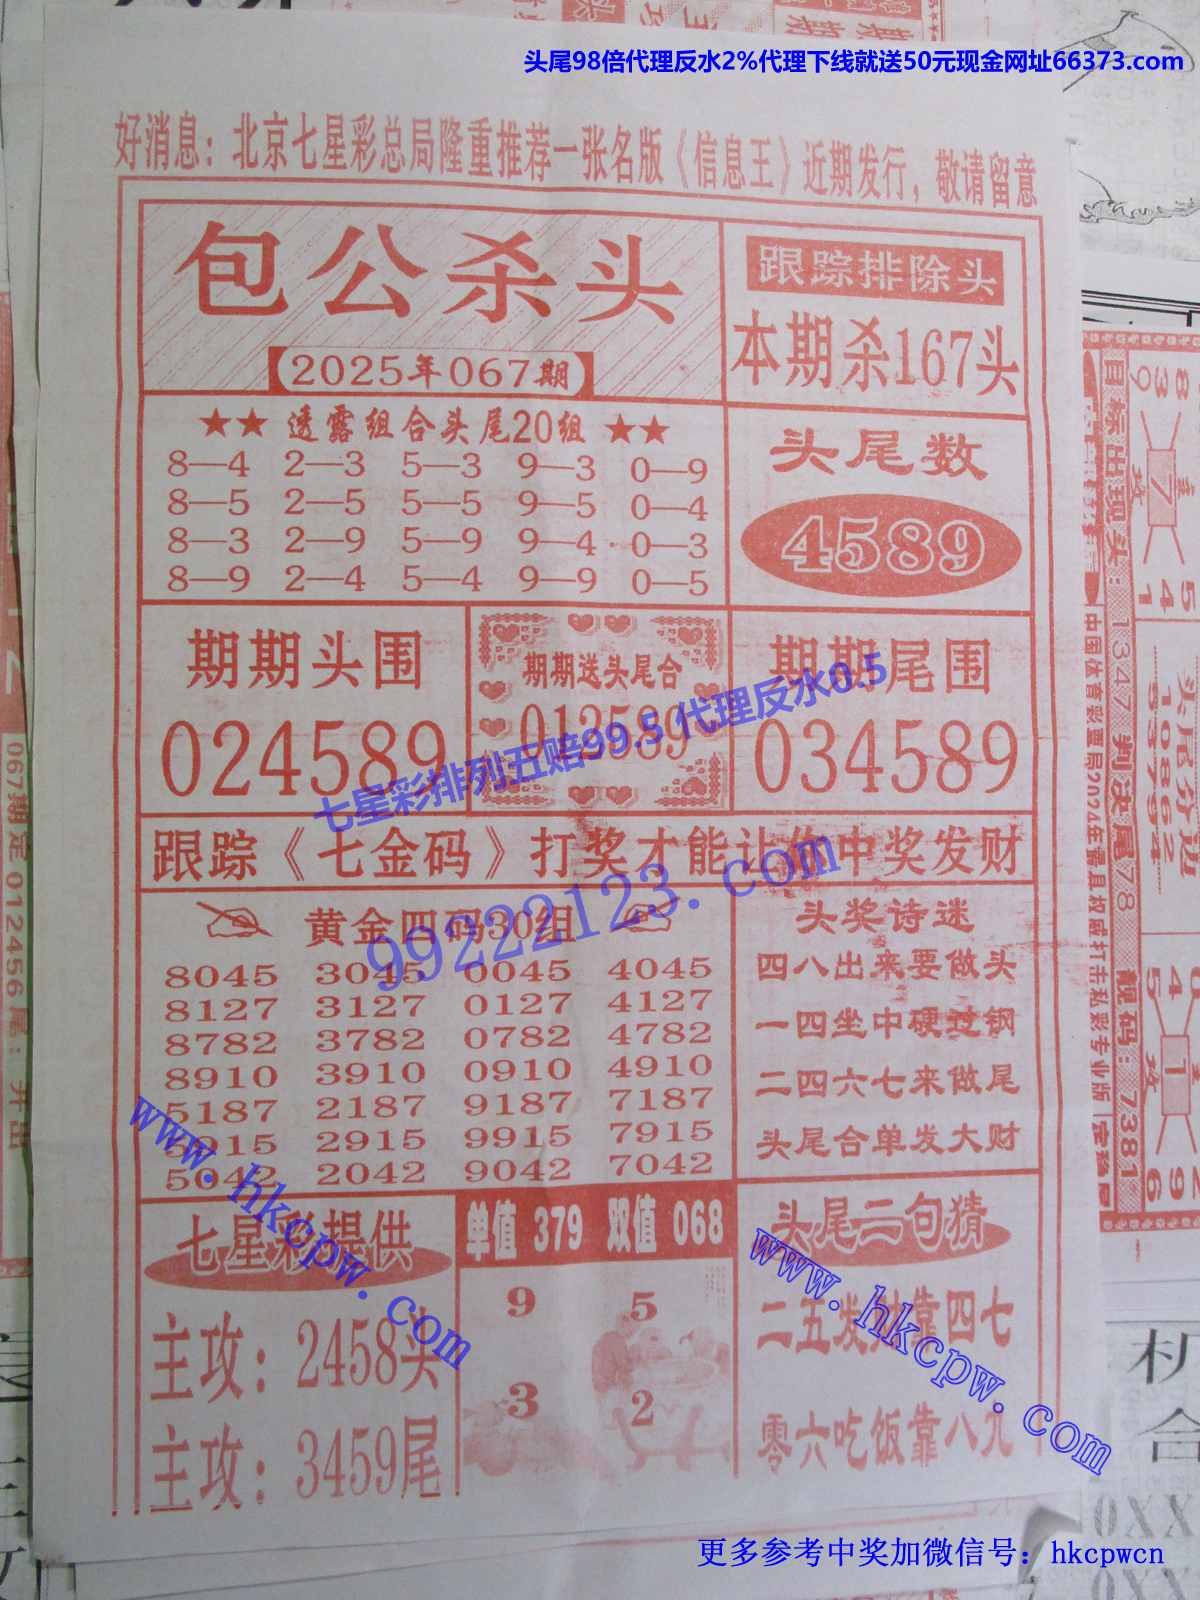 头尾98倍代理反水2%代理下线就送50元现金网址66373.com
好消息：北京七星彩总局隆重推荐一张名版《信息王》近期发行，敬请留意
包公杀头
【2025年067期】
跟踪排除头
本期杀167头
★★ 透露组合头尾20组 ★★
8—4 2—3 5—3 9—3 0—9
8—5 2—5 5—5 9—5 0—4
8—3 2—9 5—9 9—4 0—3
8—9 2—4 5—4 9—9 0—5
头尾数
4589
期期头围
024589
期期送头尾合
期期尾围
034589
七星彩排列五赔99.5 代理反水0.5
跟踪《七金码》打奖才能让你中奖发财
99222123.com
黄金四码30组
8045 3045 0045 4045
8127 3127 0127 4127
8782 3782 0782 4782
8910 3910 0910 4910
5187 2187 9187 7187
5915 2915 9915 7915
5042 2042 9042 7042
头奖诗迷
四八出来要做头
一四坐中硬过钢
二四六七来做尾
头尾合单发大财
七星彩提供
主攻：2458头
主攻：3459尾
单值 379 双值 068
9 5
3 2
头尾二句猜
二五发财靠四七
零六吃饭靠八九
www.hkcpw.com
www.hkcpw.com
更多参考中奖加微信号：hkcpwcn
067期定012456尾：开出
目标出现头：1347判决尾78
靓码：7381
中国体育彩票局2024年最具权威打击私彩专业版
头尾分边
10862
53794
机
合
0XX
0XX